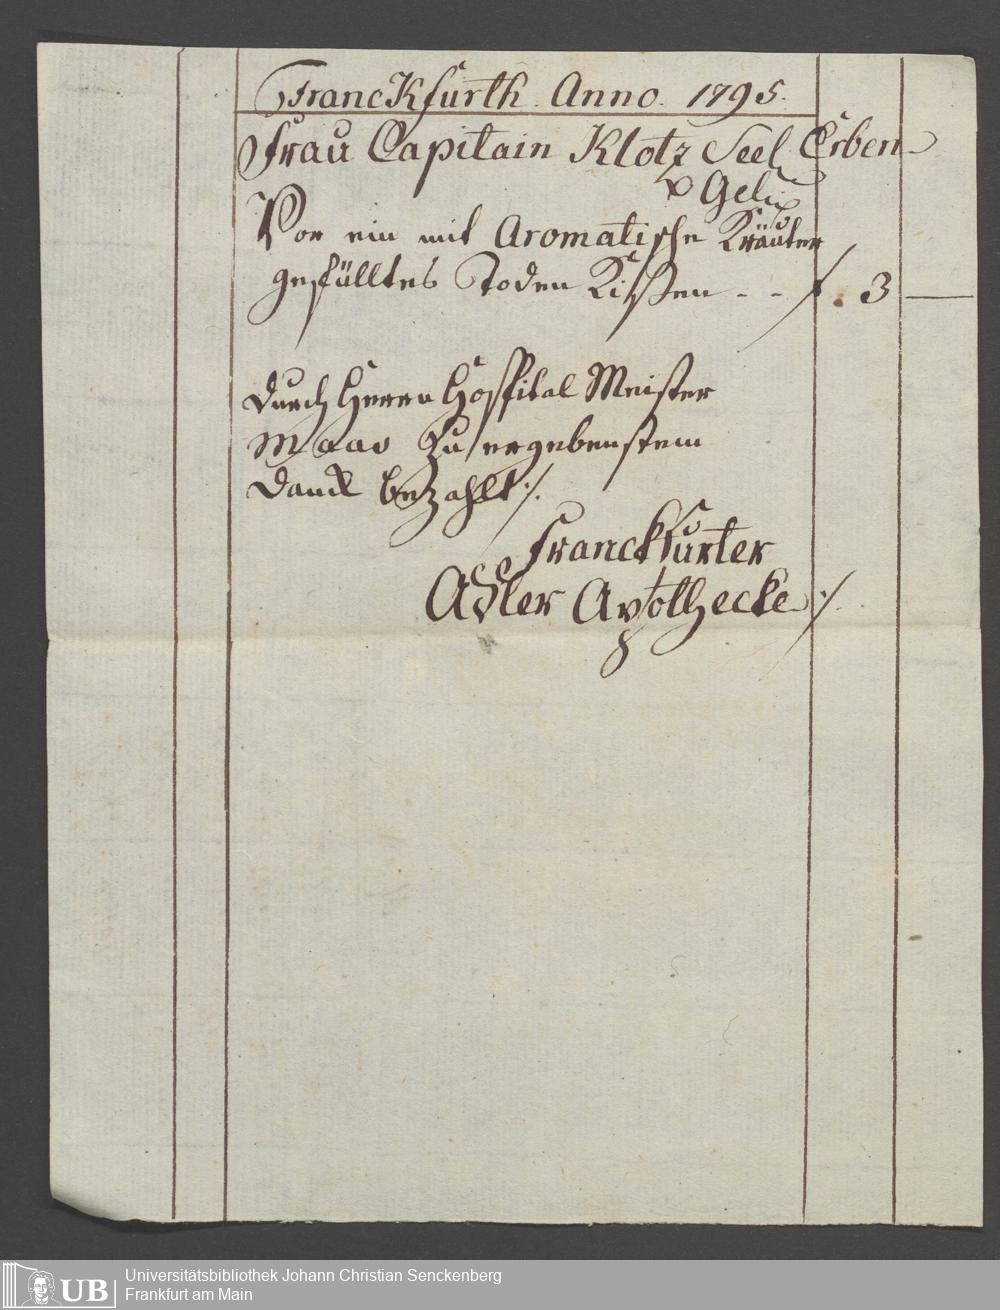 Franckfurth. Anno. 1795.
Frau Capitain Klotz Seel. Erben
Vor ein mit Aromatische Kräuter
gefülltes Toden Kißen - - f. 3 —
durch Herrn Hospital Meister
Maas zu ergebenstem
Danck bezahlt ./.
Franckfurter
Adler Apothecke ./.
UB Universitätsbibliothek Johann Christian Senckenberg
Frankfurt am Main